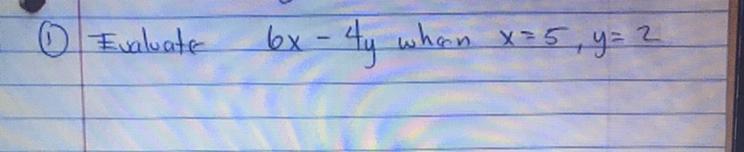 ① Evaluate 6x - 4y when x=5, y=2